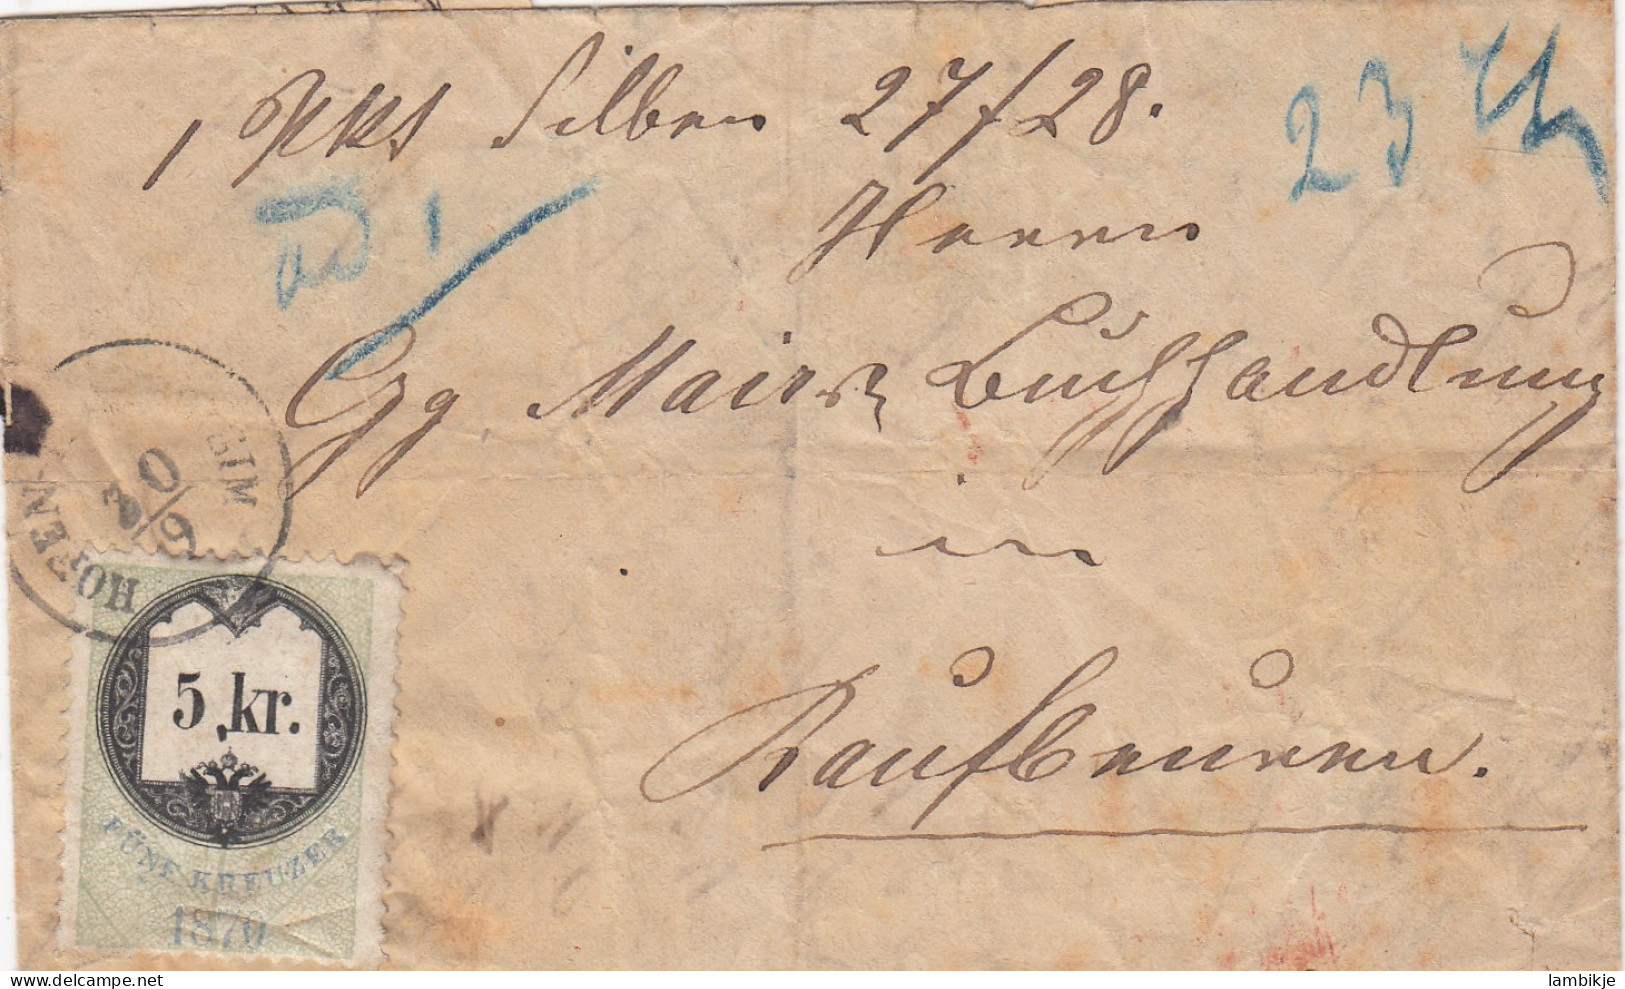 1 Pkt Silben 27/28.
23
1
Herrn
Gg Maiers Buchhandlung
in
Kaufbeuren.
HOHENEMS
30/9
5 kr.
FÜNF KREUZER
1870
lambikje